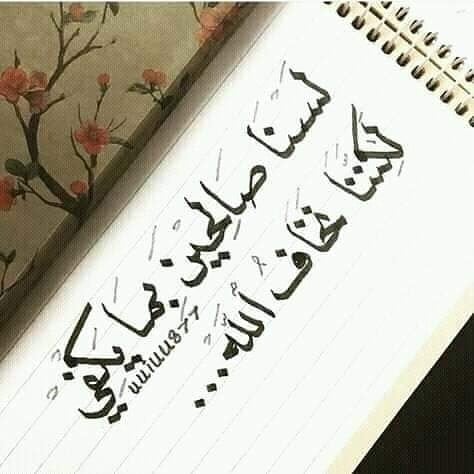 لسنا صالحين بما يكفي
لكننا نخاف الله...
uu1uu877